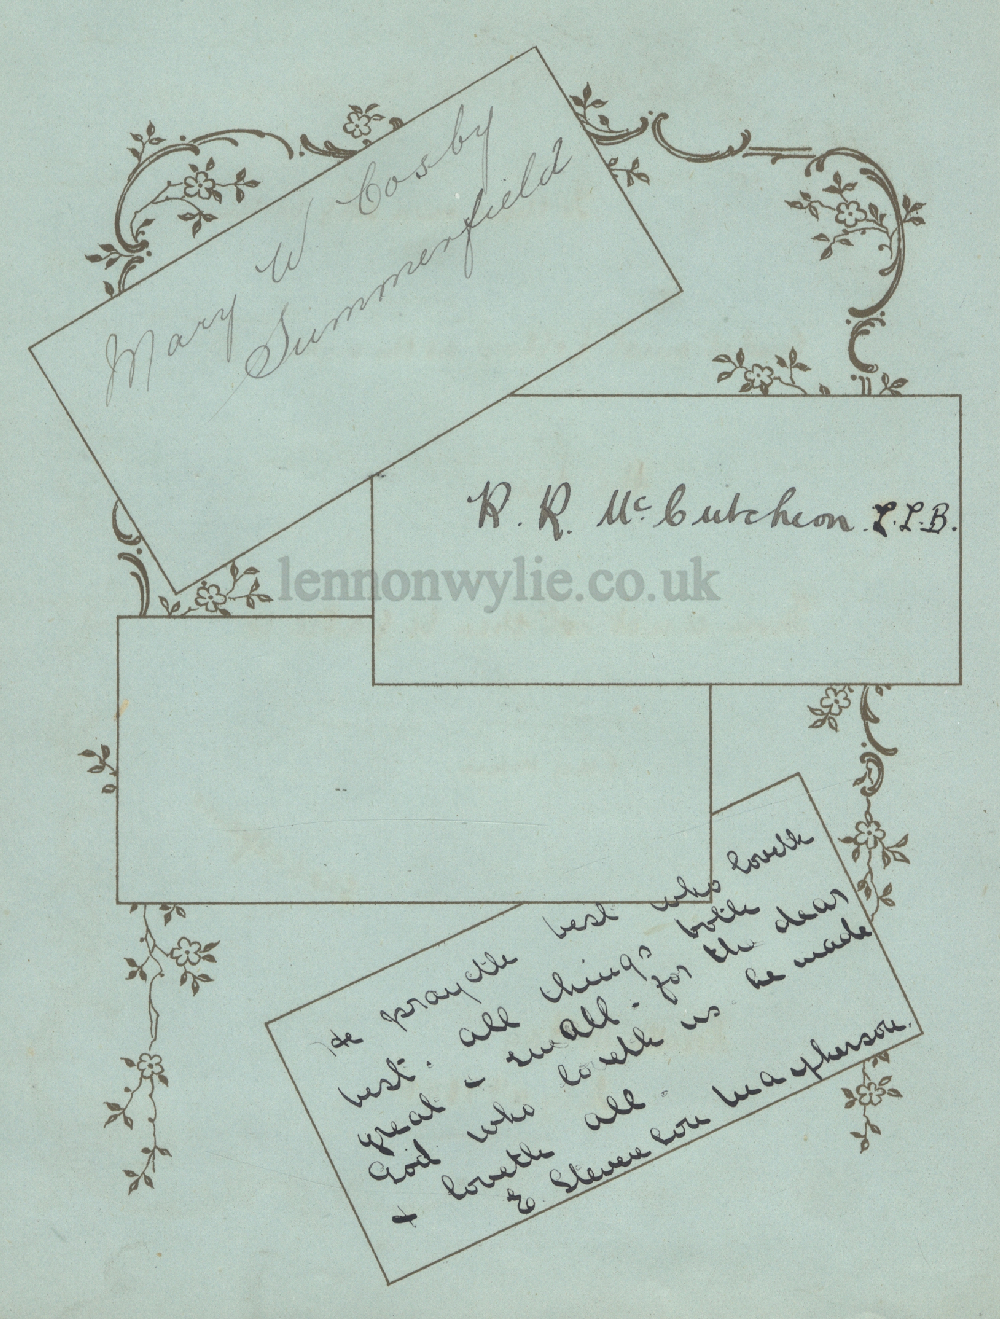 Mary W Cosby
Summerfield
R. R. McCutcheon. L.L.B.
lennonwylie.co.uk
He prayeth best who loveth
best. all things both
great + small. for the dear
God who loveth us he made
+ loveth all.
E. Stevenson Macpherson.